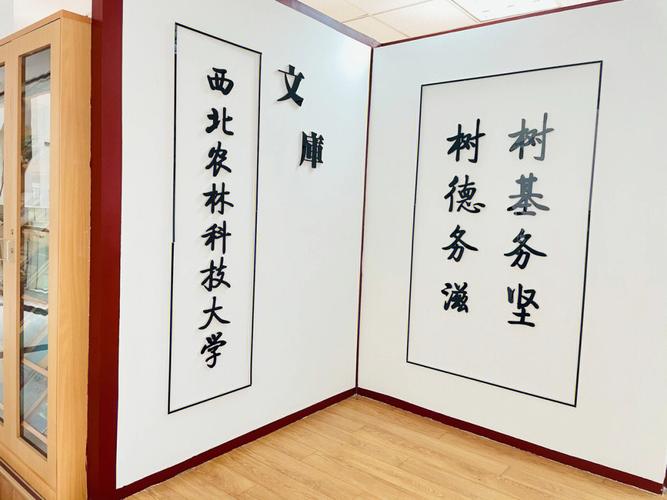 西北农林科技大学
文庫
树基务坚
树德务滋